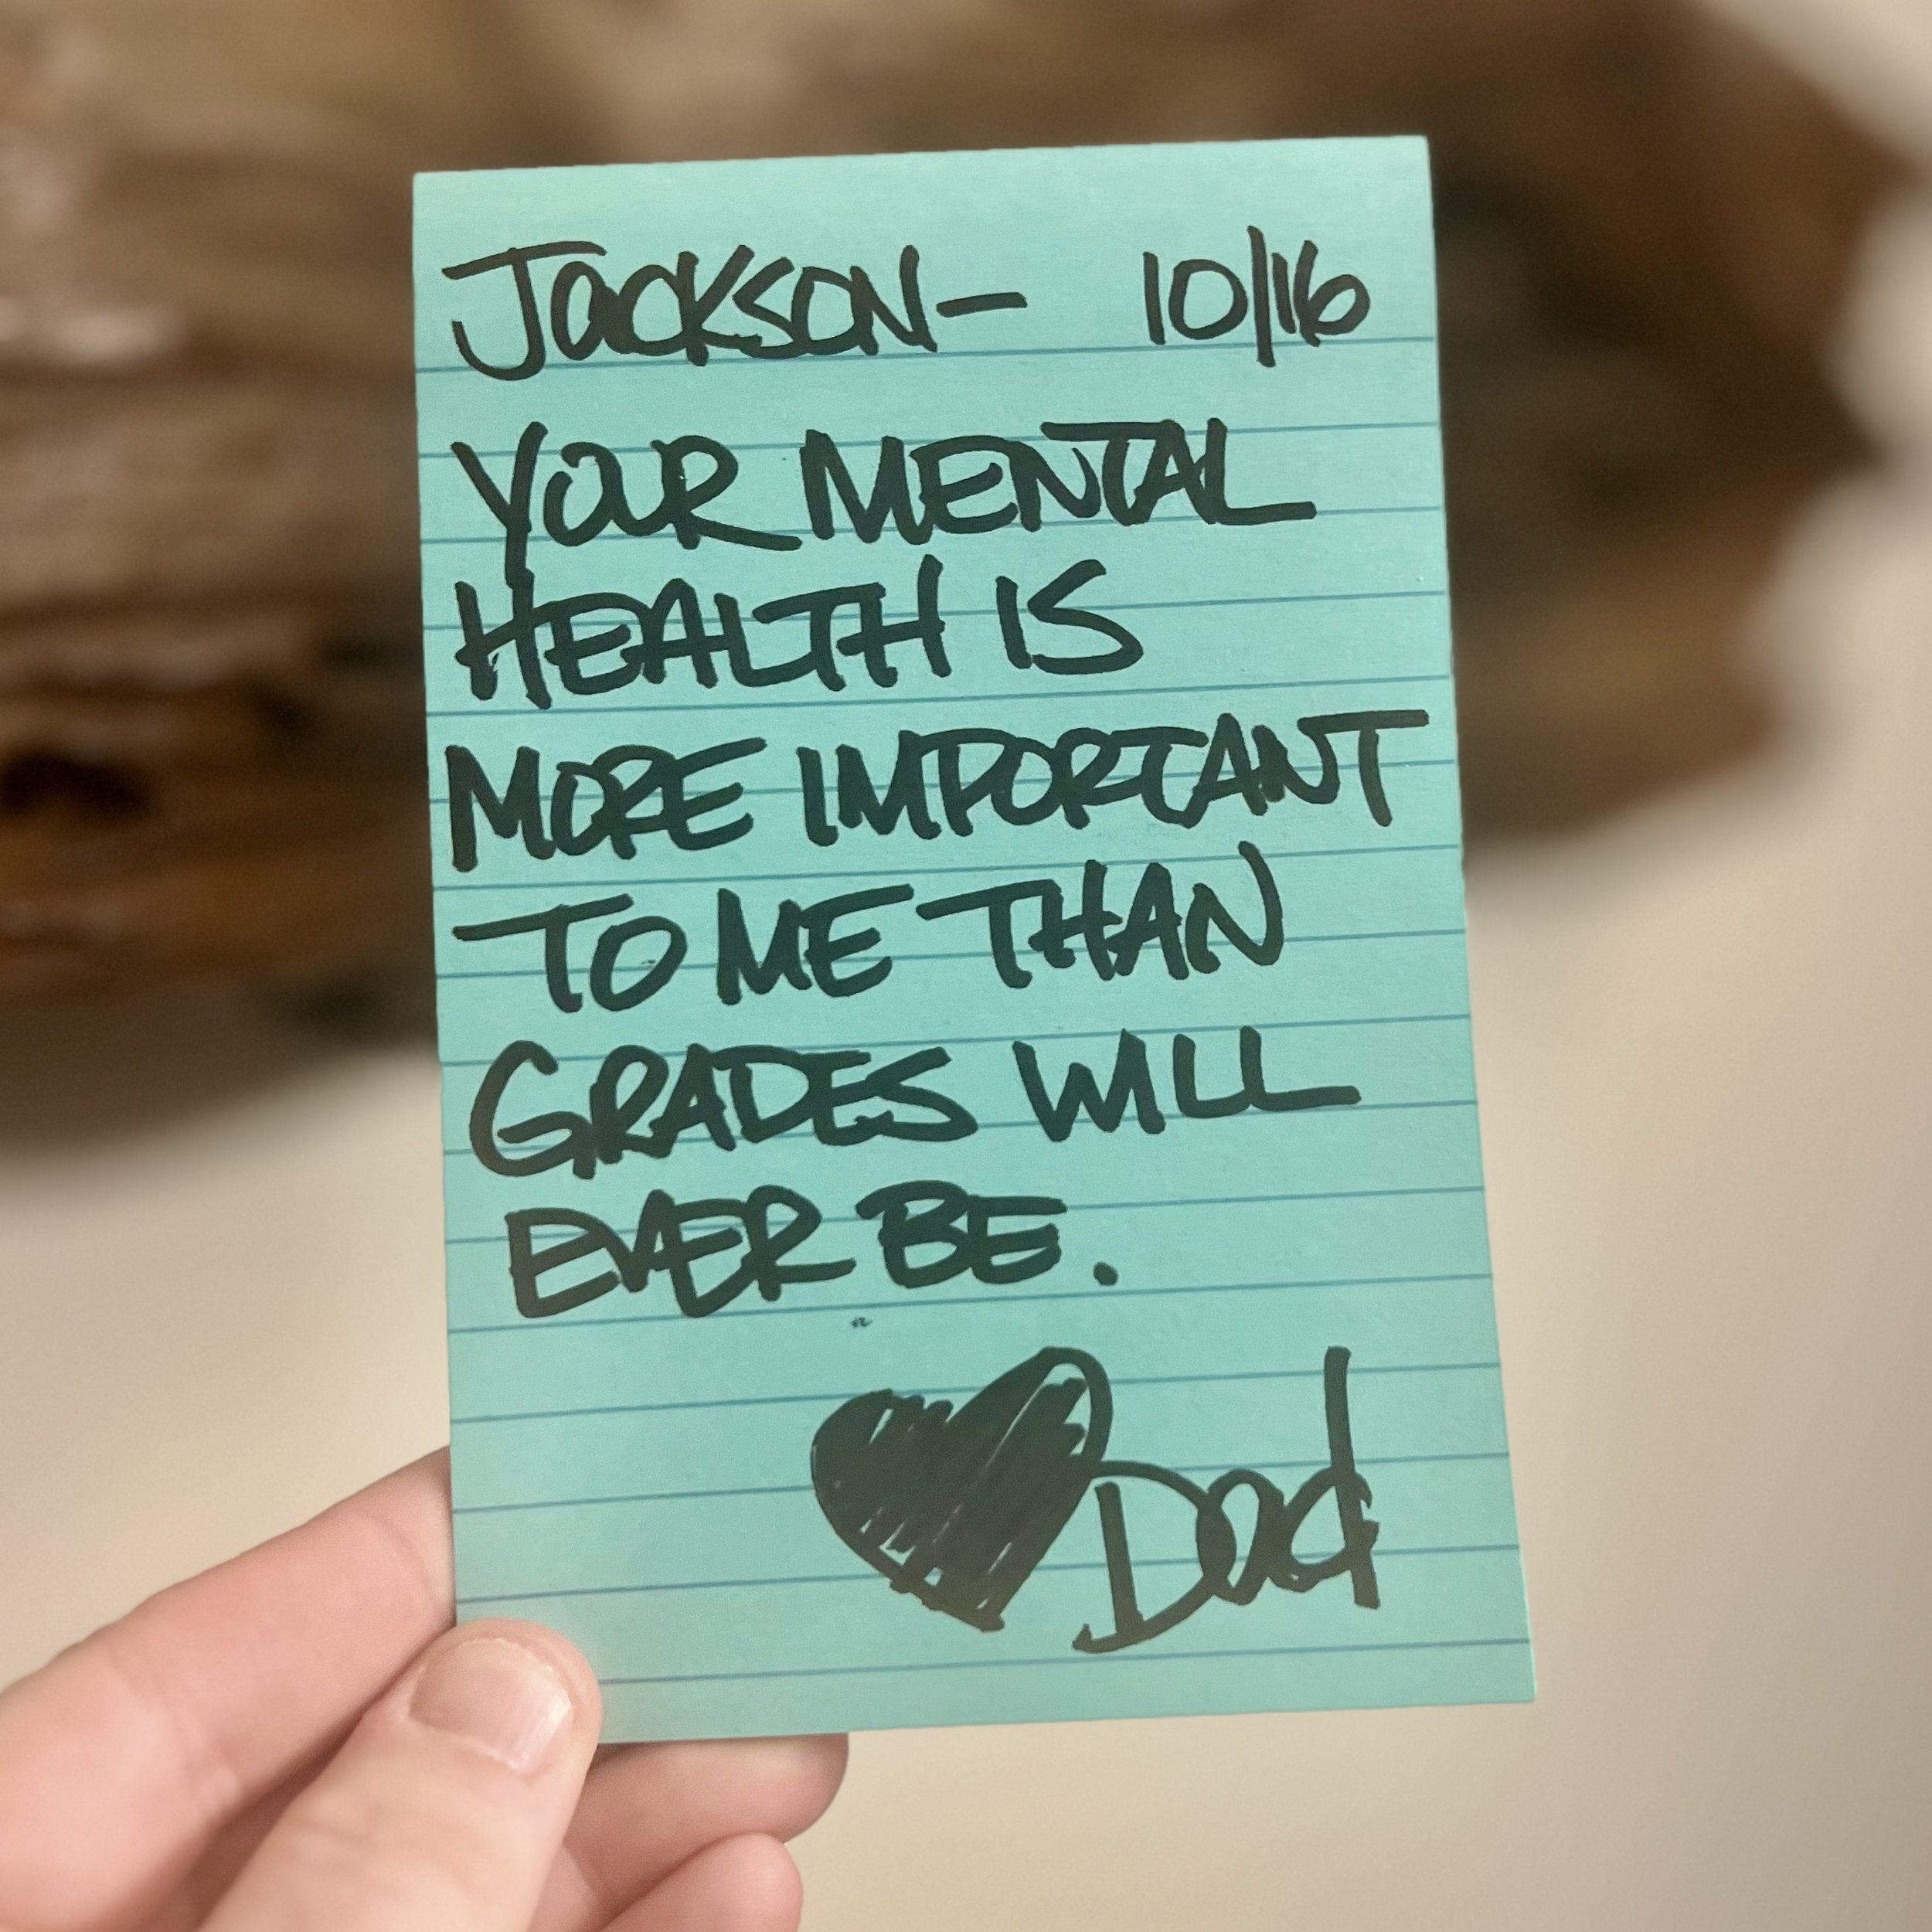 Jackson- 10/16
YOUR MENTAL
HEALTH IS
MORE IMPORTANT
TO ME THAN
GRADES WILL
EVER BE.
Dad